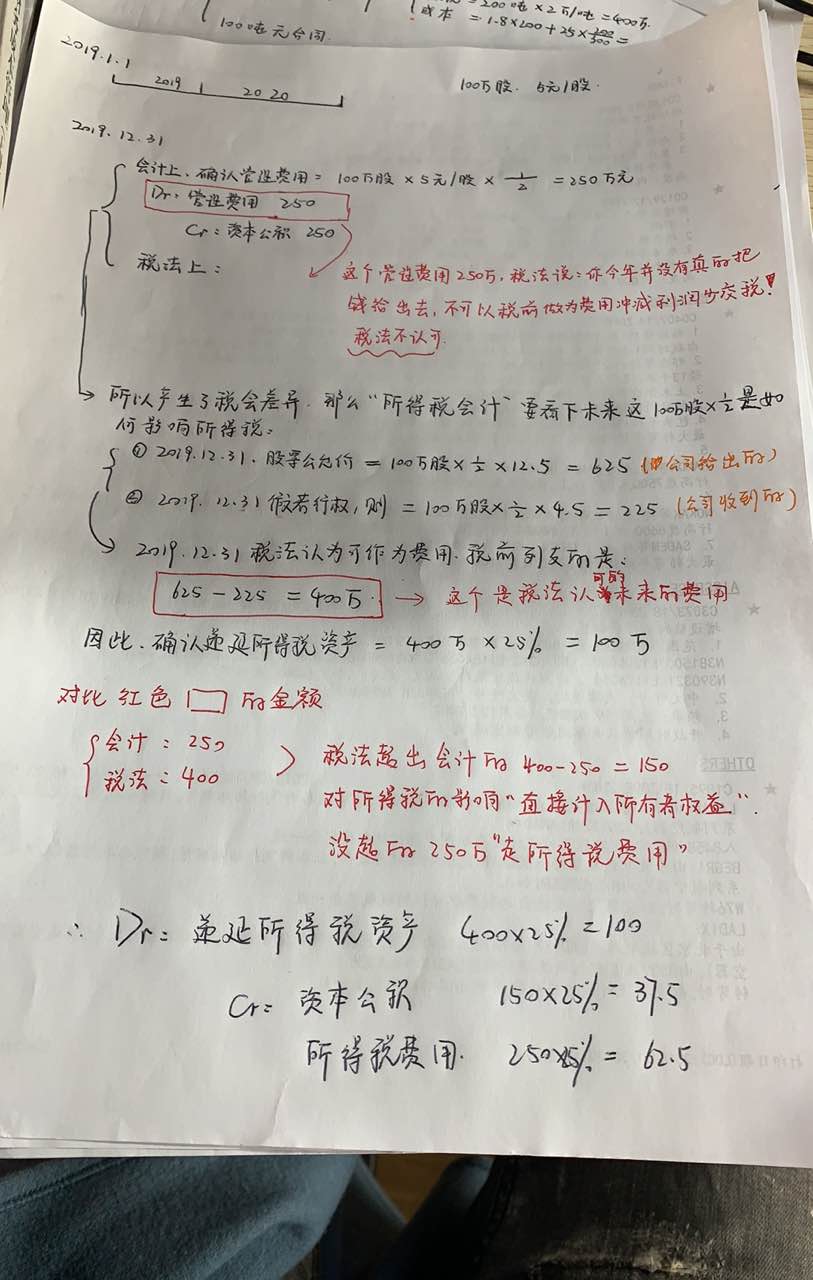 = 200吨 × 2万/吨 = 400万.
成本 = 1.8×200 + 25×200/500 =
100吨无合同.
2019.1.1
2019 2020
100万股. 5元/股.
2019.12.31
会计上、确认管理费用 = 100万股 × 5元/股 × 1/2 = 250万元
Dr: 管理费用 250
Cr: 资本公积 250
税法上:
这个管理费用250万, 税法说: 你今年并没有真的把
钱给出去, 不可以税前做为费用冲减利润少交税!
税法不认可.
所以产生了税会差异. 那么"所得税会计"要看下未来这100万股×1/2是如
何影响所得税:
① 2019.12.31. 股票公允价 = 100万股 × 1/2 × 12.5 = 625 (公司给出的)
② 2019.12.31 假若行权, 则 = 100万股 × 1/2 × 4.5 = 225 (公司收到的)
2019.12.31 税法认为可作为费用. 税前列支的是:
625 - 225 = 400万. → 这个是税法认可的未来的费用
因此、确认递延所得税资产 = 400万 × 25% = 100万
对比 红色 的金额
会计: 250
税法: 400
税法超出会计的 400-250 = 150
对所得税的影响"直接计入所有者权益".
没超的 250万"走所得税费用"
∴ Dr: 递延所得税资产 400×25% = 100
Cr: 资本公积 150×25% = 37.5
所得税费用. 250×25% = 62.5
OTHERS